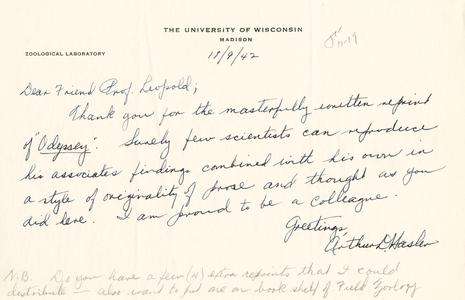 THE UNIVERSITY OF WISCONSIN
MADISON
ZOOLOGICAL LABORATORY
18/9/42
Dear Friend Prof. Leopold;
Thank you for the masterfully written reprint
of "Odyssey". Surely few scientists can reproduce
his associates findings combined with his own in
a style of originality of prose and thought as you
did here. I am proud to be a colleague.
Greetings,
Arthur D. Hasler
N.B. Do you have a few (4) extra reprints that I could
distribute — also want to put one on book shelf of Field Zoology